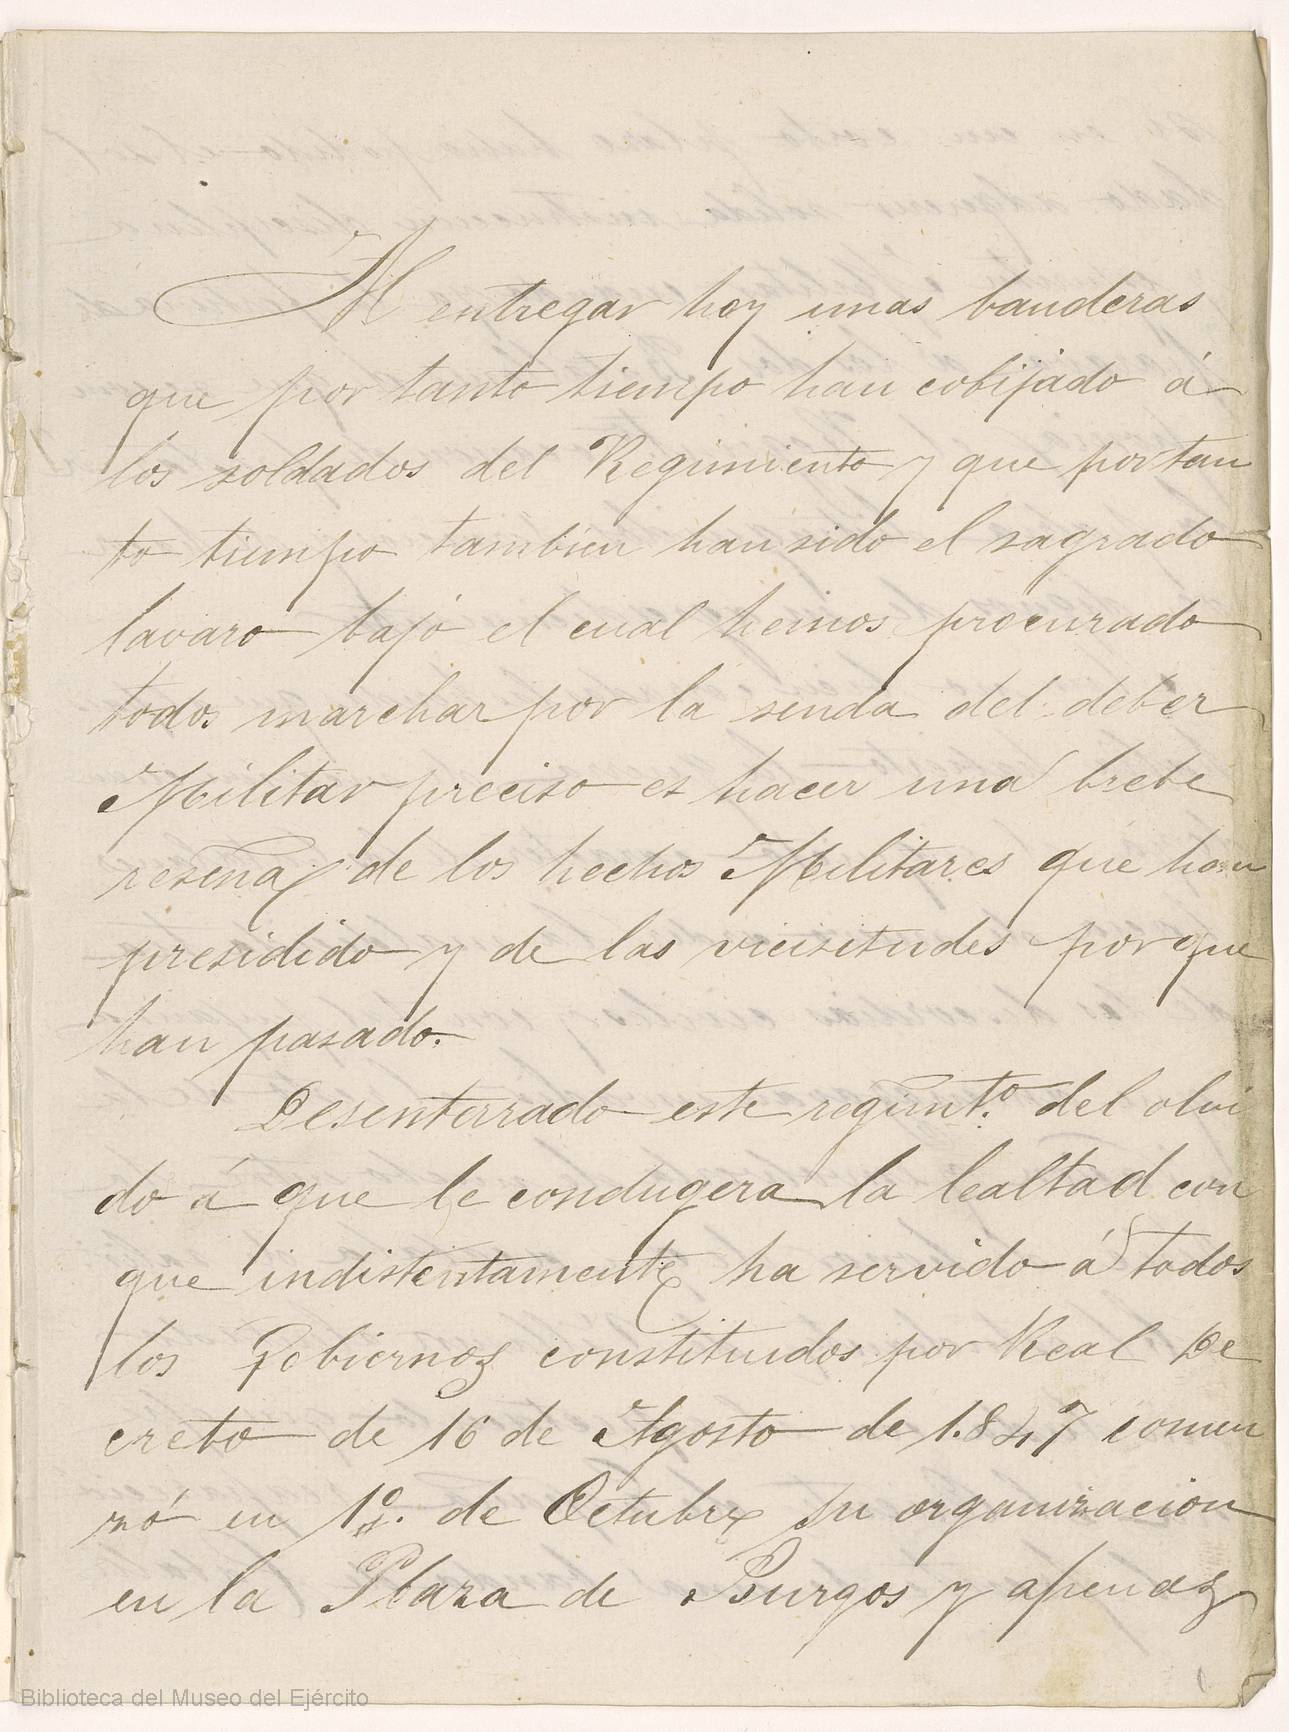 Al entregar hoy unas banderas
que por tanto tiempo han cobijado á
los soldados del Regimiento y que por tan
to tiempo tambien han sido el sagrado
lávaro bajo el cual hemos procurado
todos marchar por la senda del deber
Militar preciso es hacer una brebe
reseña de los hechos Militares que han
presidido y de las vicisitudes porque
han pasado.
Desenterrado este regimto. del olvi
do á que le condugera la lealtad con
que indistentamente ha servido á todos
los Gobiernos constituidos por Real De
creto de 16 de Agosto de 1.847 comen
zó en 1º. de Octubre su organizacion
en la Plaza de Burgos y apenas
Biblioteca del Museo del Ejército